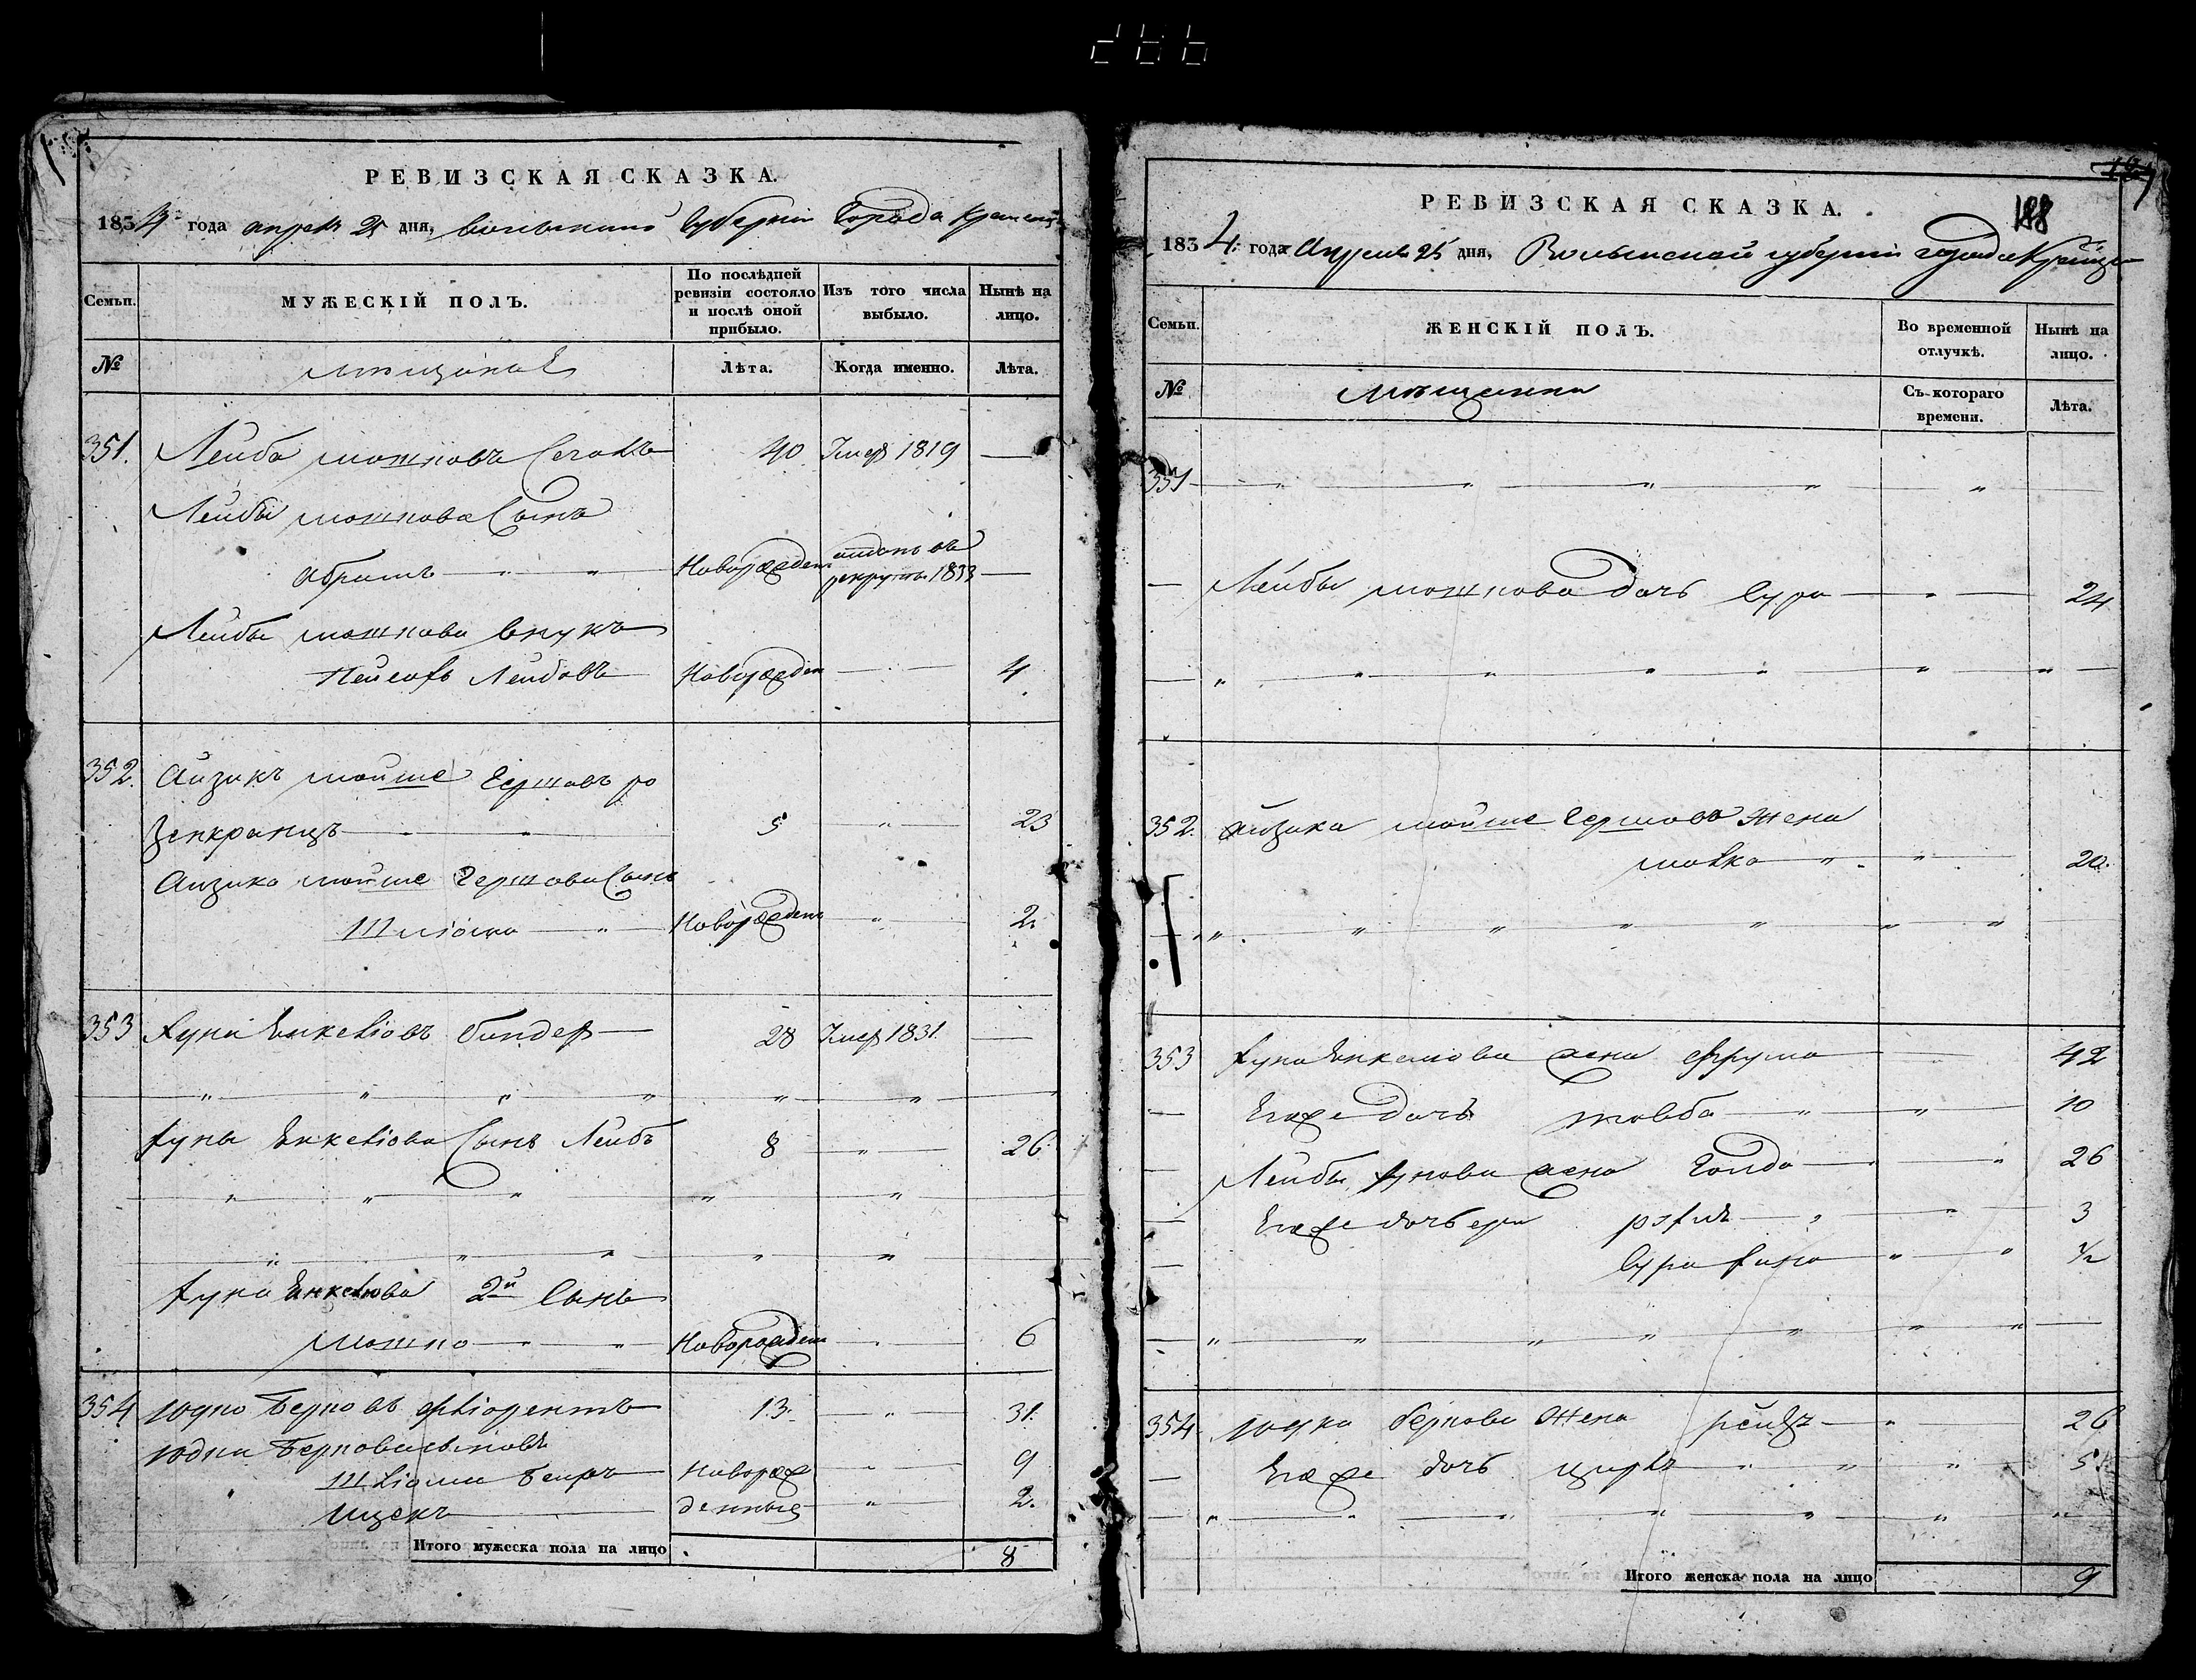 РЕВИЗСКАЯ СКАЗКА.
1834 года апреля 25 дня, Волынской Губерніи Города Кременца
Семьи. МУЖЕСКІЙ ПОЛЪ. По послѣдней ревизіи состояло и послѣ оной прибыло. Изъ того числа выбыло. Нынѣ на лицо.
№ мѣщане Лѣта. Когда именно. Лѣта.
351. Лейба мошковъ 40 Умер 1819 —
Лейбы мошкова Сынъ
абрамъ — " — " — Новорожден отданъ въ рекруты 1833 —
Лейбы мошкова внукъ
Лейбовъ Новорожден — 4
352. Айзикъ мойше Гершовъ ро
зенкранцъ — " — 5 — " — 23
Айзика мойше Гершова Сынъ
Шліома — " — Новорожден — " — 2.
353 хуна Енкеліовъ биндер — 28 Умер 1831. —
— " — " — " — " — " — " —
хуны Енкеліова Сынъ Лейба 8 — " — 26
— " — " — " — " — " —
— " — " — " — " — " —
хуна Енкеліова 2й Сынъ
мошко — " — Новорожден — " — 6
354 юдко Берковъ 13. — " — 31.
юдки Беркова сыновья
Шліома Беиръ Новорож — " — 9
ицекъ — денные — " — 2.
Итого мужеска пола на лицо 8
188
РЕВИЗСКАЯ СКАЗКА.
1834 года Апреля 25 дня, Волынской губерніи города Кременца
Семьи. ЖЕНСКІЙ ПОЛЪ. Во временной отлучкѣ. Нынѣ на лицо.
№ мѣщанки Съ котораго времени. Лѣта.
351 — " — " — " — " — "
— Лейбы мошкова дочь Сура — " — 24
— " — " — " — " — " — " — " —
352. айзика мойше Гершова жена
малка — " — " — 20.
— " — " — " — " — " — " — "
353 хуна Енкеліова жена фрума — 42
— Егоже дочь — " — " — 10
— Лейбы хунова жена Голда — " — 26
— Егоже дочери — " — " — 3
— Сура — " — " ½
— " — " — " — " — " — " — " —
354 юдка беркова жена — " 26
— Егоже дочь — " — " — " — 5.
— " — " — " — " — " — " — "
Итого женска пола на лицо 9